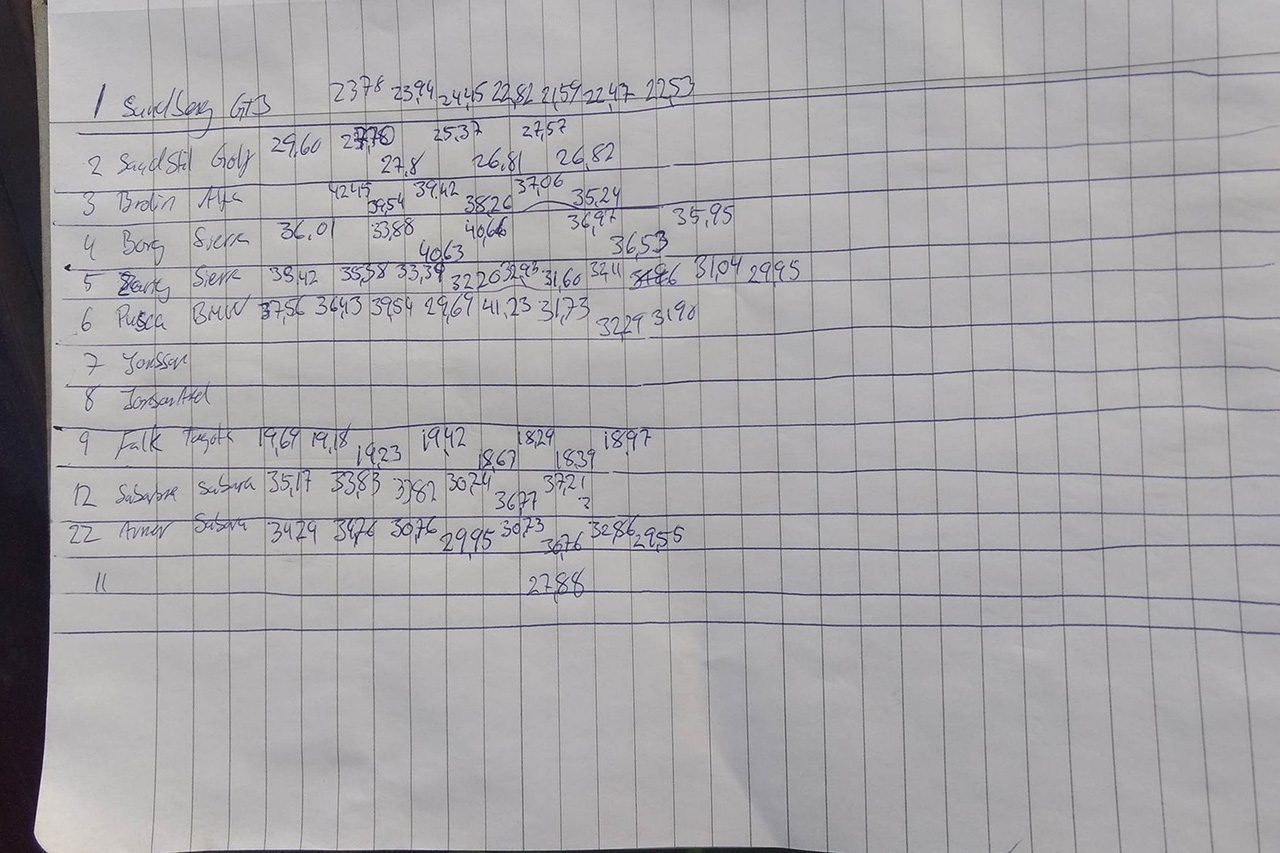 1 Sundberg GTB 23,78 23,94 24,45 22,82 21,59 22,47 22,53
2 Sandstil Golf 29,60 25,37 27,57
27,8 26,81 26,82
3 Brolin Alfa 42,45 39,42 37,06
39,54 38,26 35,24
4 Borg Sierra 36,01 33,88 40,66 36,97 35,95
40,63 36,53
5 Sierra 35,38 33,39 32,20 32,93 31,60 32,11 31,04 29,95
6 Pusca BMW 37,56 36,43 39,54 29,69 41,23 31,73 32,29 31,90
7 Jonsson
8
9 Falk 19,69 19,18 19,42 18,29 18,97
19,23 18,67 18,39
12 Subaru 35,17 33,83 33,82 30,74 37,21
36,77 ?
22 Subaru 34,29 34,76 30,76 29,95 30,73 32,86 29,55
11 27,88